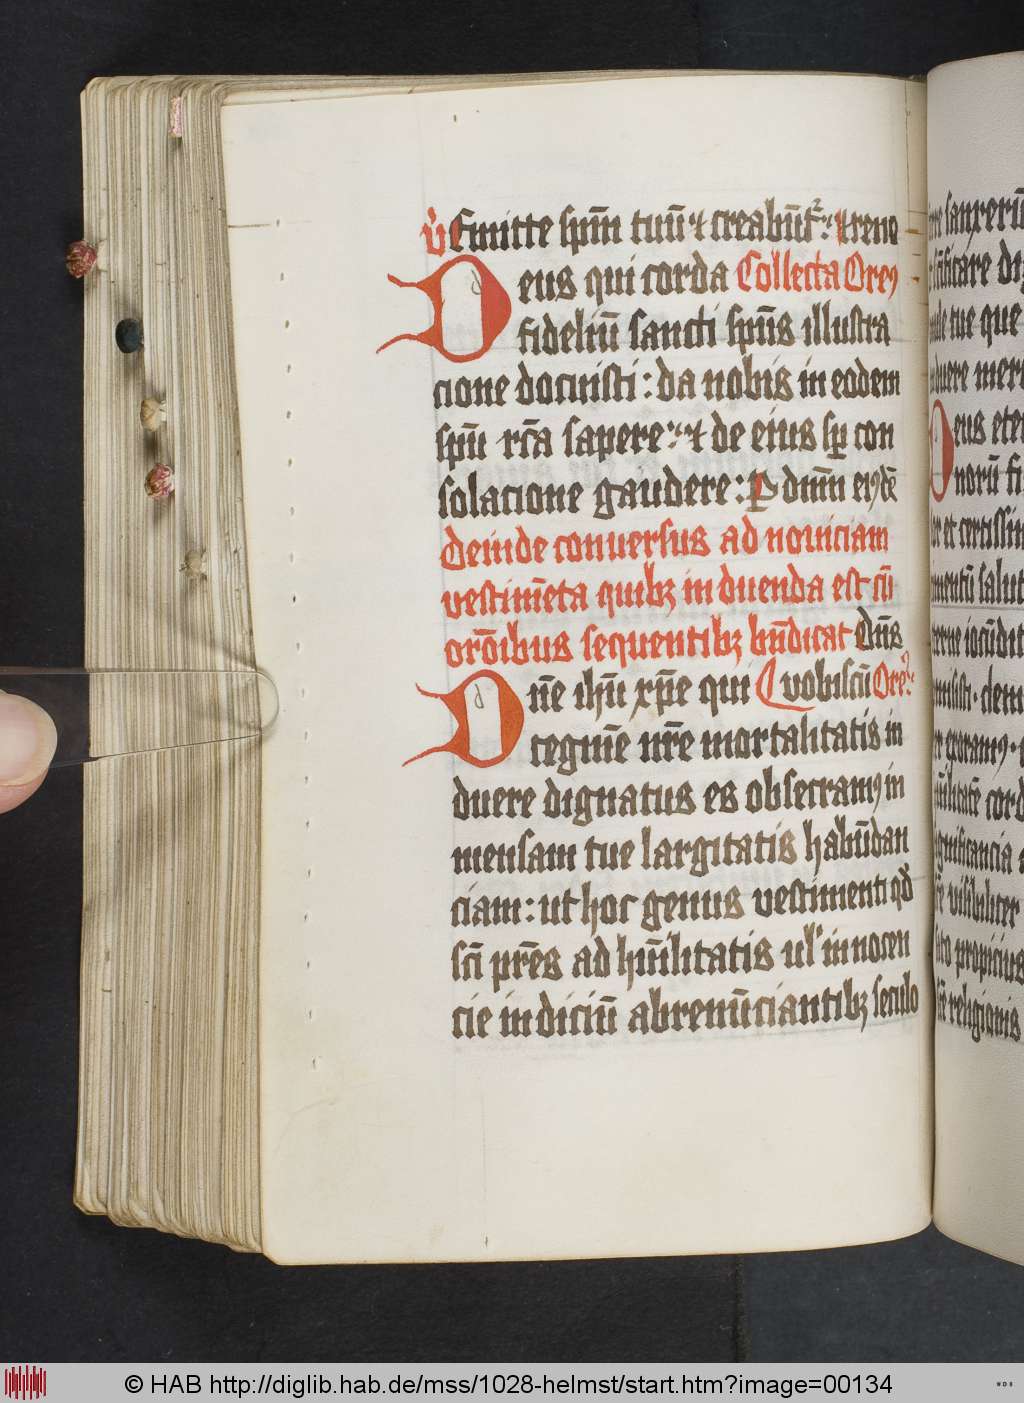 v̉ Emitte spm̄ tuū ⁊ creabūt᷑: ⁊ reno
Deus qui corda Collecta Oreꝰ
fideliū sancti spūs illustra
cione docuisti: da nobis in eodem
spū rc̄a sapere: ⁊ de eius sꝑ con
solacione gaudere: P dnm̄ eiꝰdē
Deinde conuersus ad nouiciam
vestim̄eta quibꝫ induenda est cū
orōibus sequentibꝫ bn̄dicat Dn̄s
Dn̄e ihū xp̄e qui vobiscū Oreꝰ
tegum̄e nr̄e mortalitatis in
duere dignatus es obsecramꝰ in
mensam tue largitatis habūdan
ciam: ut hoc genus vestimenti qd̓
sc̄i pr̄es ad hūilitatis ul' innocen
cie indiciū abrenūciantibꝫ seculo
sanxerū
sc̄ificare
tue que
duere
Deus
norū
et certissim
salut
iocūdit
exoramꝰ
cord
visibiliter
propicius
religionis
© HAB http://diglib.hab.de/mss/1028-helmst/start.htm?image=00134